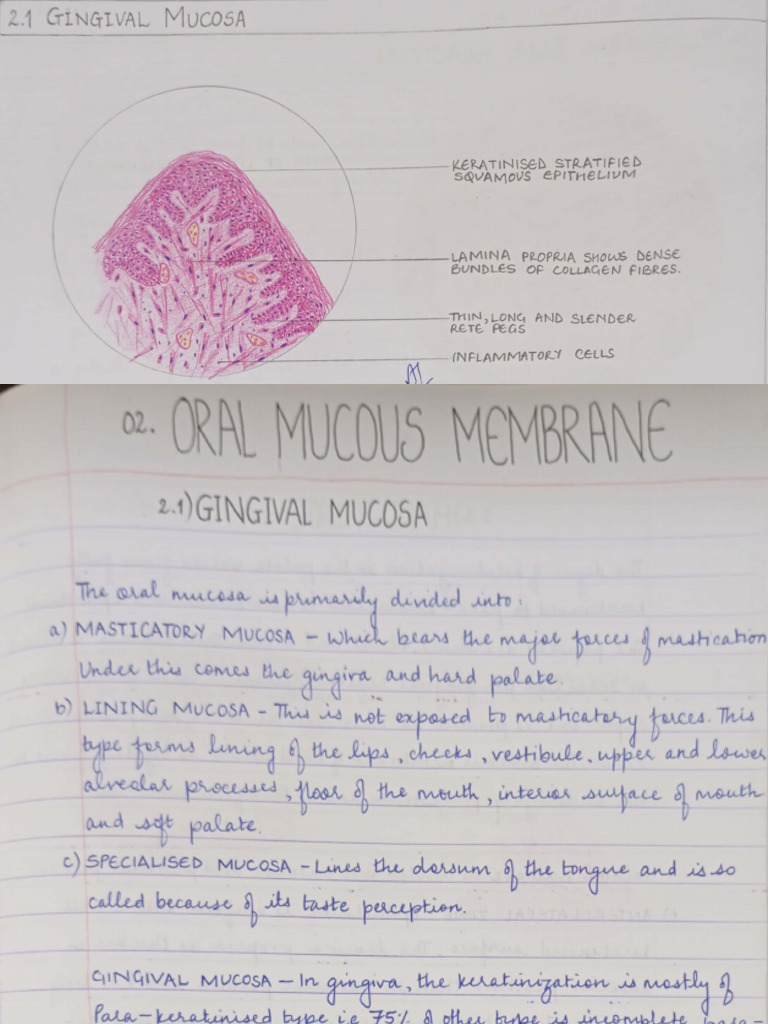 2.1 GINGIVAL MUCOSA
KERATINISED STRATIFIED
SQUAMOUS EPITHELIUM
LAMINA PROPRIA SHOWS DENSE
BUNDLES OF COLLAGEN FIBRES.
THIN, LONG AND SLENDER
RETE PEGS
INFLAMMATORY CELLS
02. ORAL MUCOUS MEMBRANE
2.1) GINGIVAL MUCOSA
The oral mucosa is primarily divided into:
a) MASTICATORY MUCOSA - Which bears the major forces of mastication
Under this comes the gingiva and hard palate.
b) LINING MUCOSA - This is not exposed to masticatory forces. This
type forms lining of the lips, cheeks, vestibule, upper and lower
alveolar processes, floor of the mouth, interior surface of mouth
and soft palate.
c) SPECIALISED MUCOSA - Lines the dorsum of the tongue and is so
called because of its taste perception.
GINGIVAL MUCOSA - In gingiva, the keratinization is mostly of
Para-keratinised type i.e 75% & other type is incomplete para-